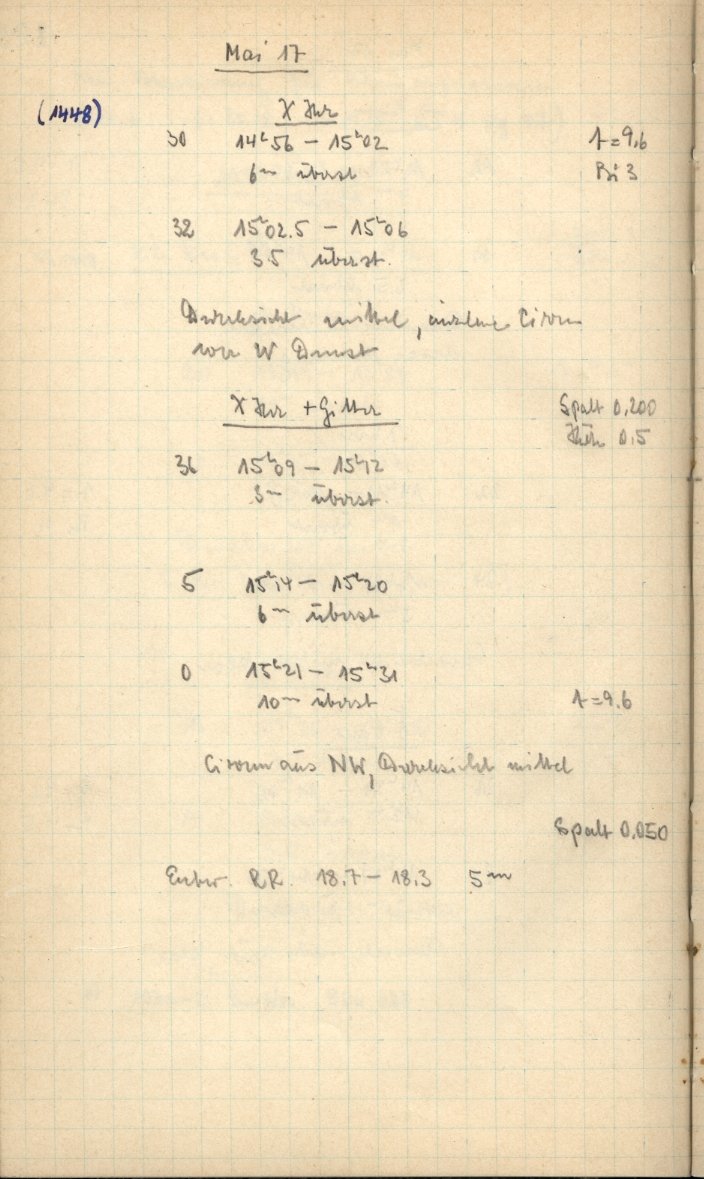 Mai 17
(1448)
X Her
30 14ʰ56 – 15ʰ02 A=9,6
6ᵐ überst Bi 3
32 15ʰ02.5 – 15ʰ06
3.5 überst.
Durchsicht mittel, einzelne Cirren
von W Dunst
X Her + Gitter Spalt 0,200
Höhe 0,5
36 15ʰ09 – 15ʰ12
3ᵐ überst.
5 15ʰ14 – 15ʰ20
6ᵐ überst
0 15ʰ21 – 15ʰ31
10ᵐ überst A=9.6
Cirren aus NW, Durchsicht mittel
Spalt 0,050
Entw. RR. 18,7 – 18,3 5ᵐ